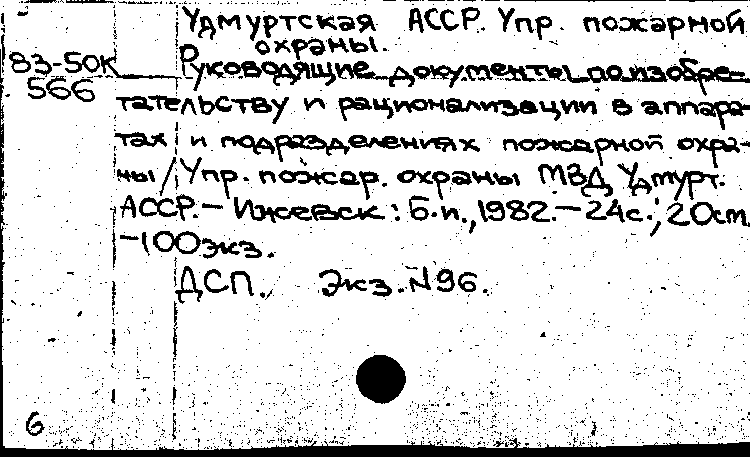 Удмуртская АССР. Упр. пожарной
охраны.
83-50К Руководящие документы по изобре-
566 тательству и рационализации в аппара-
тах и подразделениях пожарной охра-
ны / Упр. пожар. охраны МВД Удмурт.
АССР. — Ижевск : Б.и., 1982. — 24с.; 20см.
— 100экз.
ДСП. Экз. N96.
6